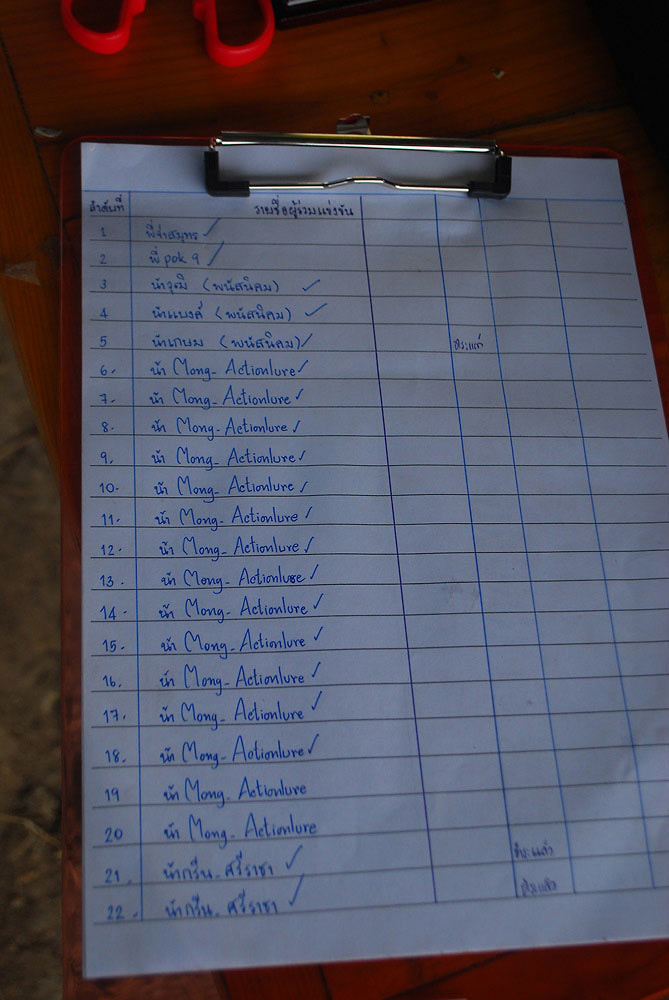 ลำดับที่ รายชื่อผู้ร่วมแข่งขัน
1 พี่จ่าสมุทร ✓
2 พี่ pok 9 ✓
3 น้าวุฒิ (พนัสนิคม) ✓
4 น้าแบงค์ (พนัสนิคม) ✓
5 น้าเกษม (พนัสนิคม) ✓
6. น้า Mong - Actionlure ✓
7. น้า Mong - Actionlure ✓
8. น้า Mong - Actionlure ✓
9. น้า Mong - Actionlure ✓
10. น้า Mong - Actionlure ✓
11. น้า Mong - Actionlure ✓
12. น้า Mong - Actionlure ✓
13. น้า Mong - Actionlure ✓
14. น้า Mong - Actionlure ✓
15. น้า Mong - Actionlure ✓
16. น้า Mong - Actionlure ✓
17. น้า Mong - Actionlure ✓
18. น้า Mong - Actionlure ✓
19 น้า Mong - Actionlure
20 น้า Mong - Actionlure
21. น้ากรีน - ศรีราชา ✓
22. น้ากรีน - ศรีราชา ✓